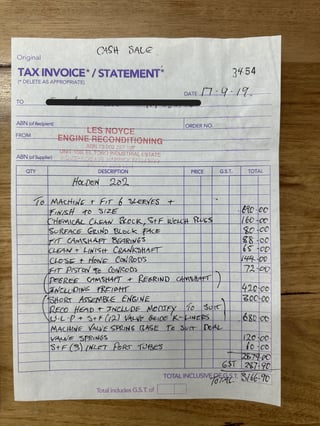 CASH SALE
Original
TAX INVOICE* / STATEMENT*
(* DELETE AS APPROPRIATE).
3454
DATE 17-9-19.
TO
ABN (of Recipient)
ORDER NO.
FROM
LES NOYCE
ENGINE RECONDITIONING
ABN (of Supplier)
QTY DESCRIPTION PRICE G.S.T. TOTAL
HOLDEN 202
TO MACHINE + FIT 6 SLEEVES +
FINISH TO SIZE 690-00
CHEMICAL CLEAN BLOCK, S+F WELCH PLUGS 160-00
SURFACE GRIND BLOCK FACE 80-00
FIT CAMSHAFT BEARINGS 88-00
CLEAN + LINISH CRANKSHAFT 65-00
CLOSE + HONE CONRODS 144-00
FIT PISTON TO CONRODS 72-00
DEGREE CAMSHAFT + REGRIND CAMSHAFT
INCLUDING FREIGHT 420-00
SHORT ASSEMBLE ENGINE 300-00
RECO HEAD + INCLUDE MODIFY TO SUIT
U-L-P + S+F (12) VALVE GUIDE K-LINERS 680-00
MACHINE VALVE SPRING BASE TO SUIT DUAL
VALVE SPRINGS 120-00
S+F (3) INLET PORT TUBES 60-00
2879.00
GST 287.90
TOTAL INCLUSIVE OF G.S.T.
TOTAL: 3166-90
Total includes G.S.T. of